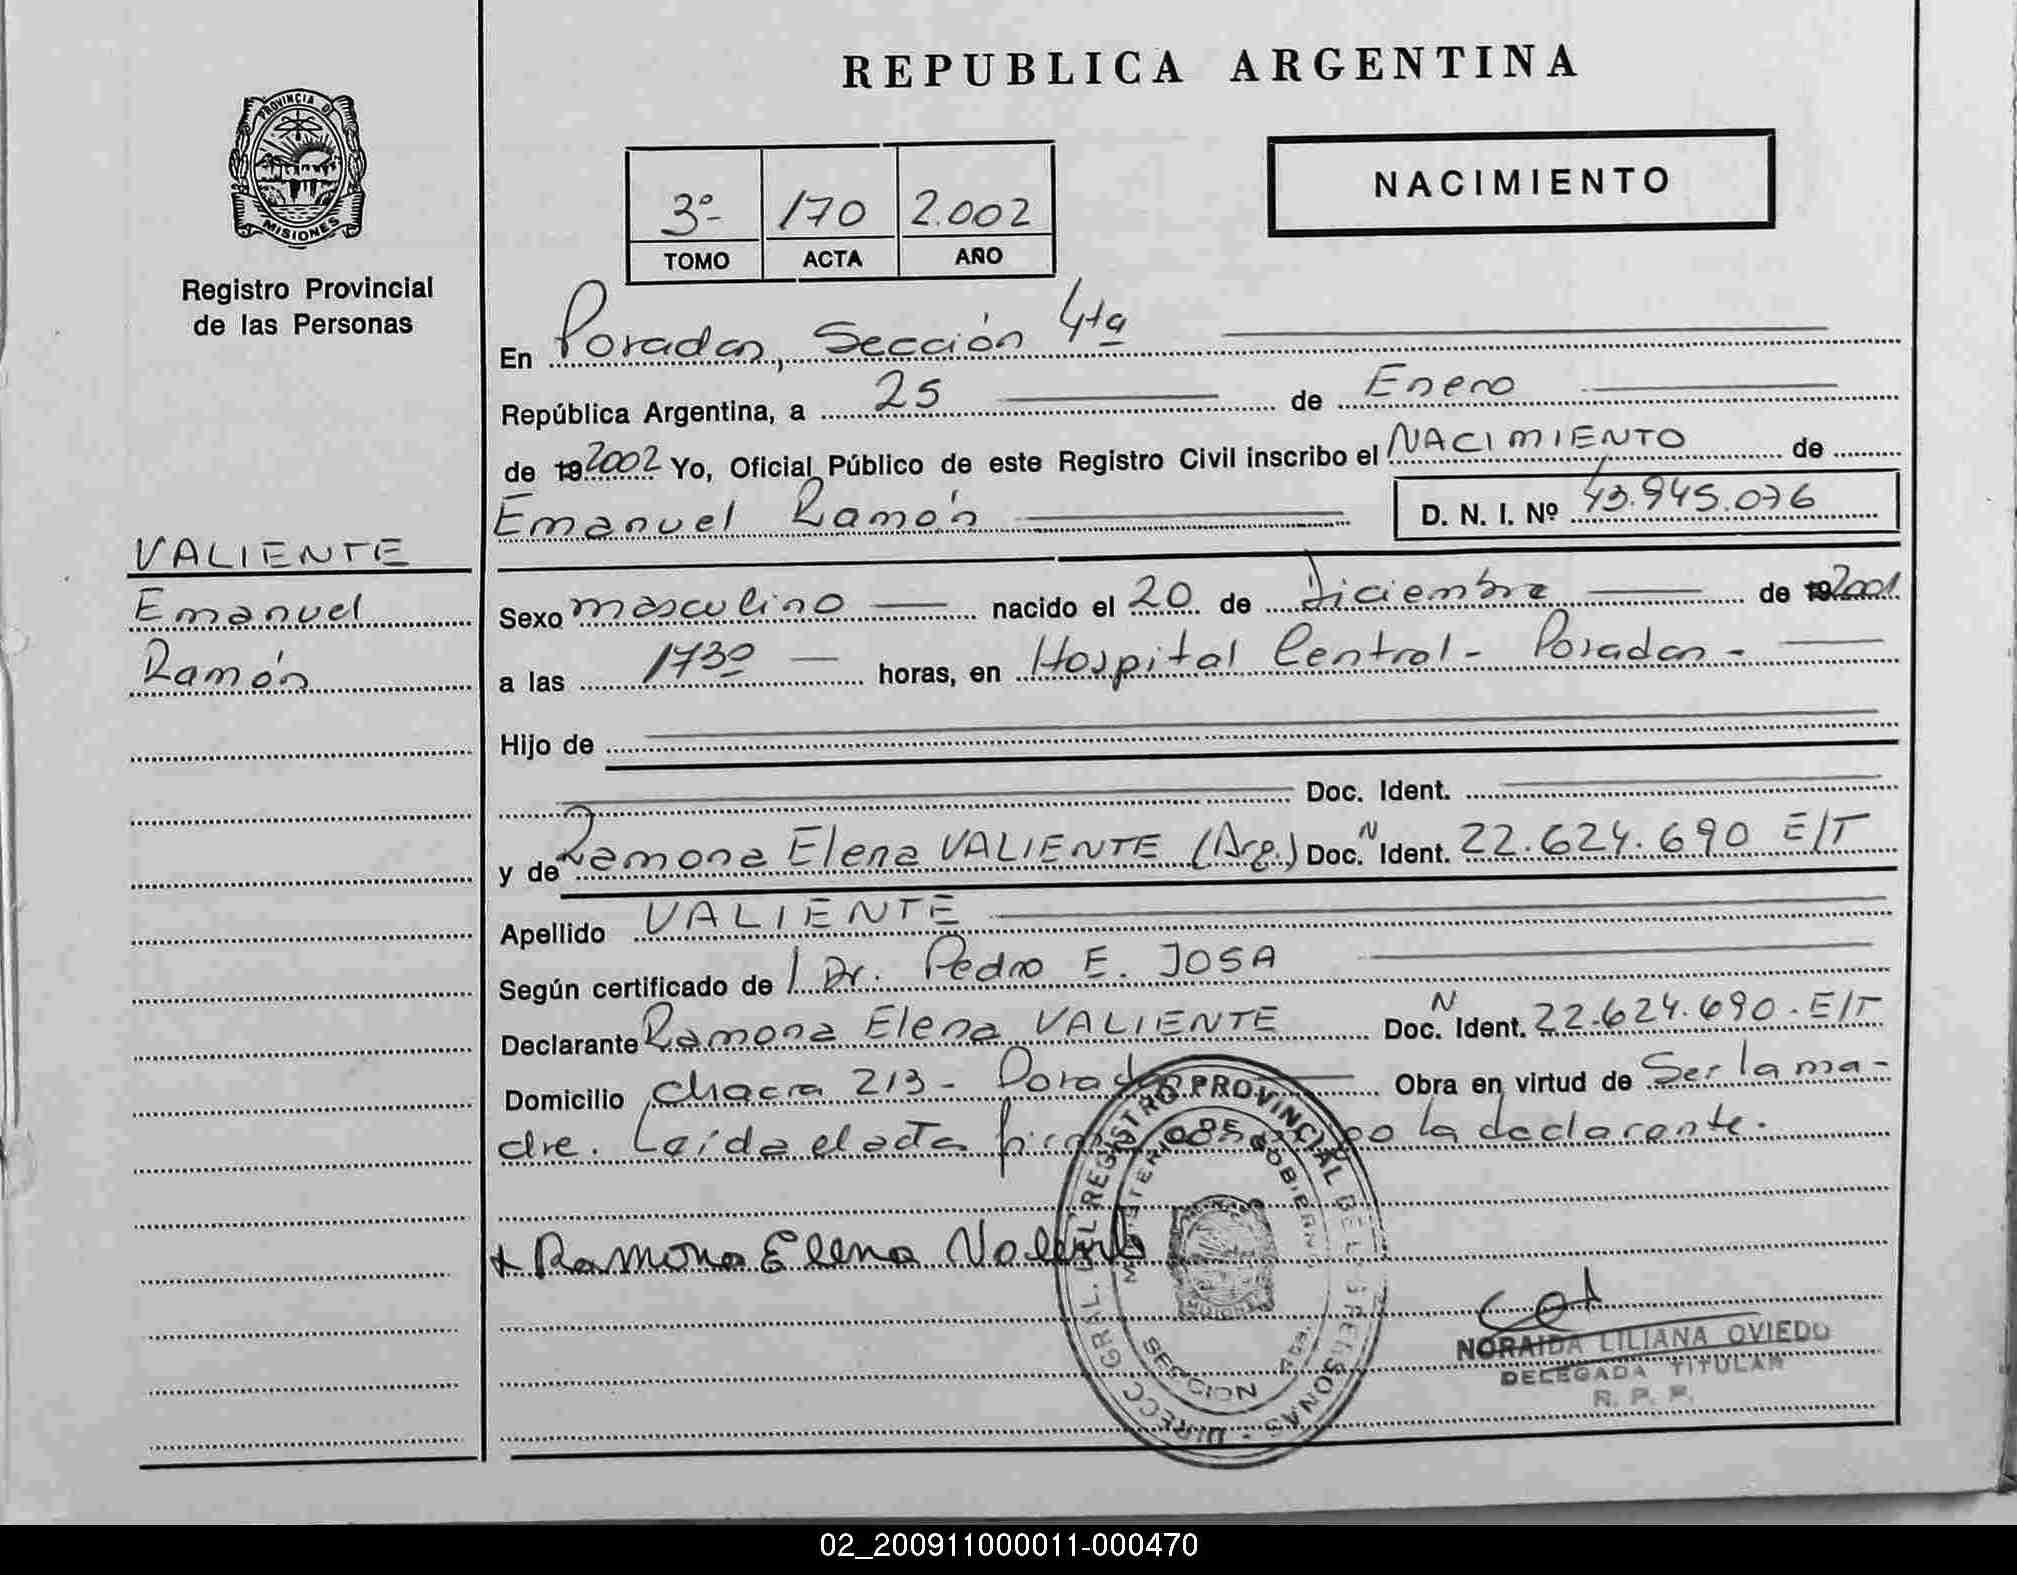 REPUBLICA ARGENTINA
PROVINCIA DE
MISIONES
Registro Provincial
de las Personas
3º 170 2.002
TOMO ACTA AÑO
NACIMIENTO
En Posadas, Sección 4ta
República Argentina, a 25 de Enero
de 19 2002 Yo, Oficial Público de este Registro Civil inscribo el NACIMIENTO de
Emanuel Ramón D. N. I. Nº 43.945.076
VALIENTE
Emanuel
Ramón
Sexo masculino nacido el 20 de diciembre de 19 2001.
a las 17³⁰ horas, en Hospital Central - Posadas -
Hijo de
Doc. Ident.
y de Ramona Elena VALIENTE (Arg.) Doc. N Ident. 22.624.690 E/T
Apellido VALIENTE
Según certificado de Dr. Pedro E. JOSA
Declarante Ramona Elena VALIENTE Doc. N Ident. 22.624.690 - E/T
Domicilio Chacra 213 - Posadas Obra en virtud de Ser la ma-
dre. Leída el acta la declarante.
+ Ramona Elena Valiente
DIRECC. GRAL. DEL REGISTRO PROVINCIAL DE LAS PERSONAS
MINISTERIO DE GOBIERNO
SECCION
NORAIDA LILIANA OVIEDO
DELEGADA TITULAR
R. P. P.
02_200911000011-000470